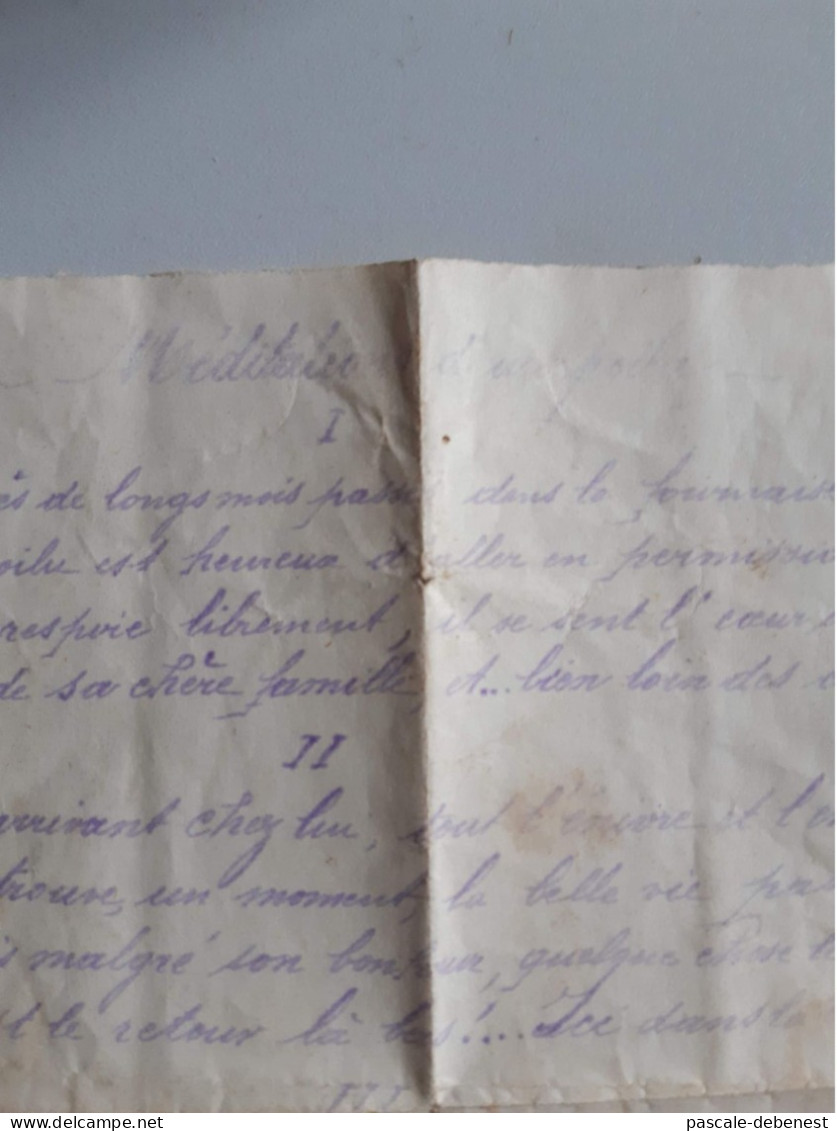 Méditations d'un poilu
I
ès de longs mois passés dans la fournaise
oilu est heureux d'aller en permission
respire librement, il se sent l'cœur
de sa chère famille, et... bien loin des
II
arrivant chez lui, tout l'enivre et l'
trouve, un moment, la belle vie
s malgré son bonheur, quelque chose
t le retour là bas!.... Ici dans
III
delcampe.net
pascale-debenest